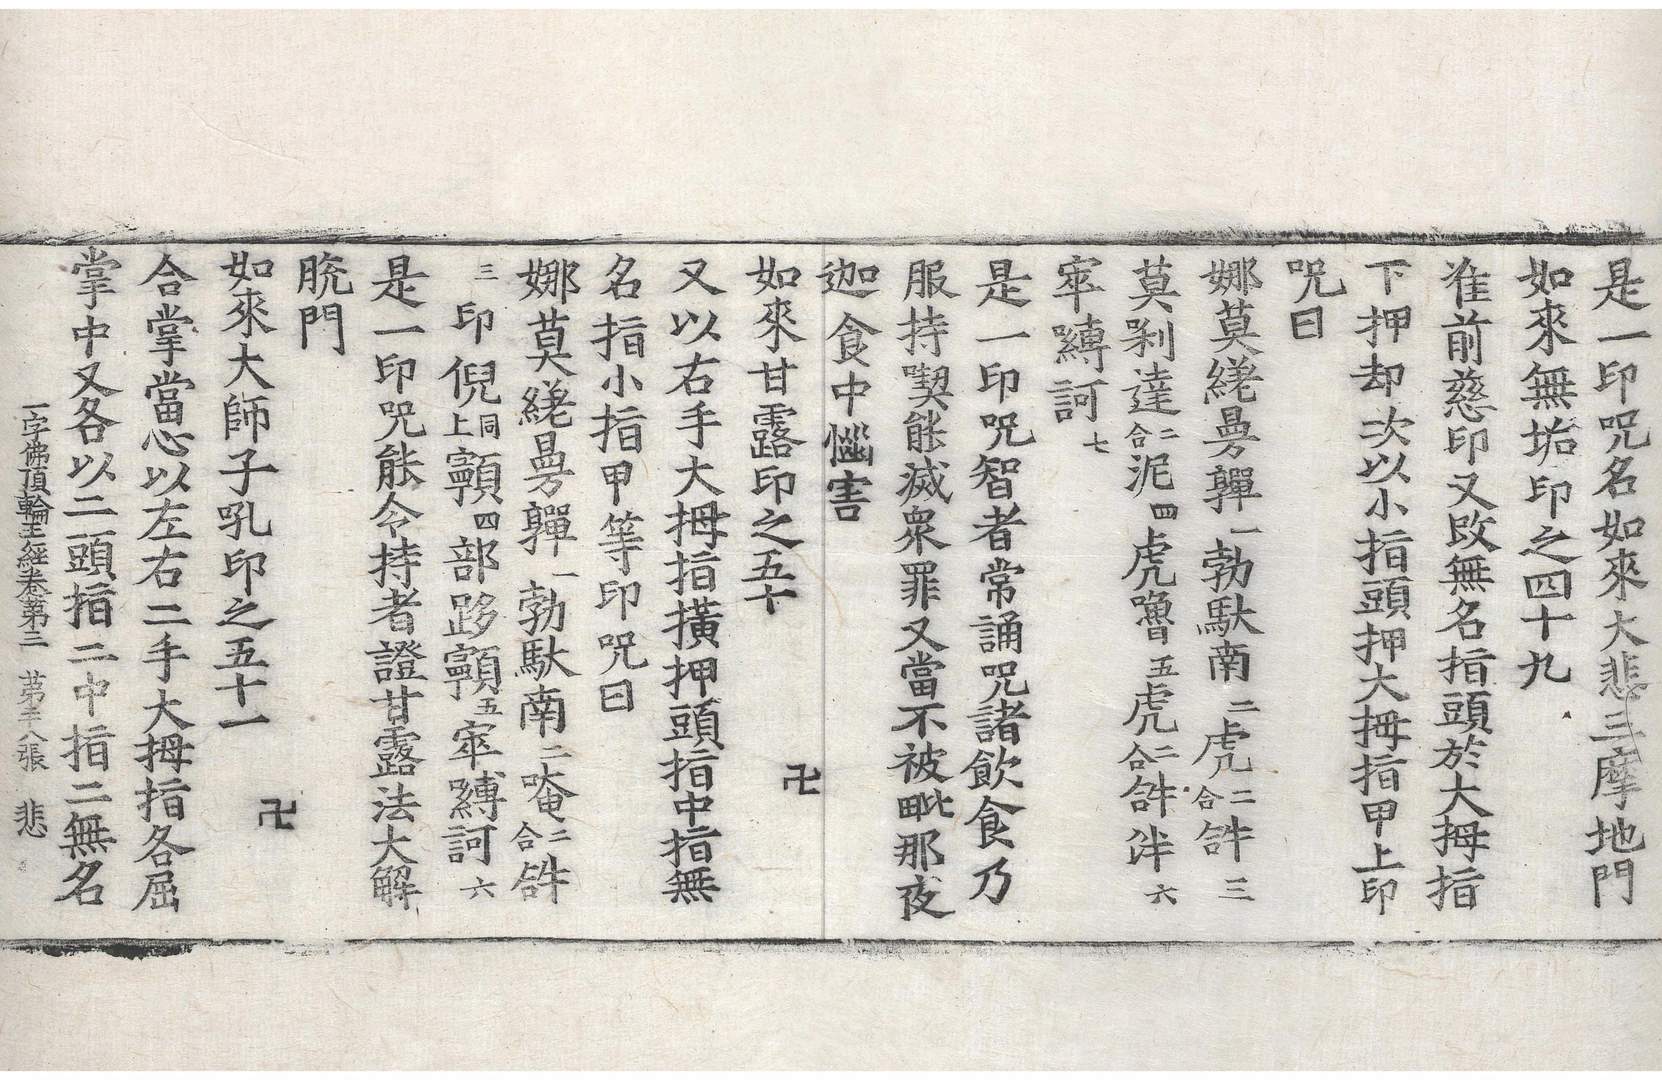 是一印呪名如來大悲三摩地門
如來無垢印之四十九
准前慈印又改無名指頭於大拇指
下押却次以小指頭押大拇指甲上印
呪曰
娜莫縒曼嚲一勃馱南二虎二合𤙖三
莫剎達二合泥四虎嚕五虎二合𤙖泮六
窣嚩訶七
是一印呪智者常誦呪諸飲食乃
服持喫能滅衆罪又當不被毗那夜
迦食中惱害
如來甘露印之五十 卍
又以右手大拇指橫押頭指中指無
名指小指甲等印呪曰
娜莫縒曼嚲一勃馱南二唵二合𤙖
三 印倪同上顐四部跢顐五窣嚩訶六
是一印呪能令持者證甘露法大解
脫門
如來大師子吼印之五十一 卍
合掌當心以左右二手大拇指各屈
掌中又各以二頭指二中指二無名
一字佛頂輪王經卷第三 苐二十八張 悲